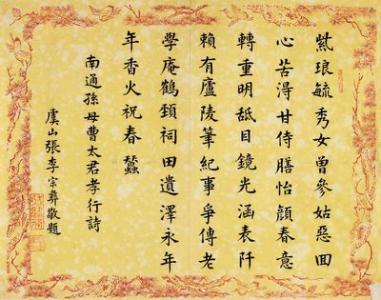 紫琅毓秀女曾參姑惡回
心苦淂甘侍膳怡顏春意
轉重明舐目鏡光涵表阡
賴有廬陵筆紀事爭傳老
學庵鶴頸祠田遺澤永年
年香火祝春蠶
南通孫母曹太君孝行詩
虞山張李宗彝敬題